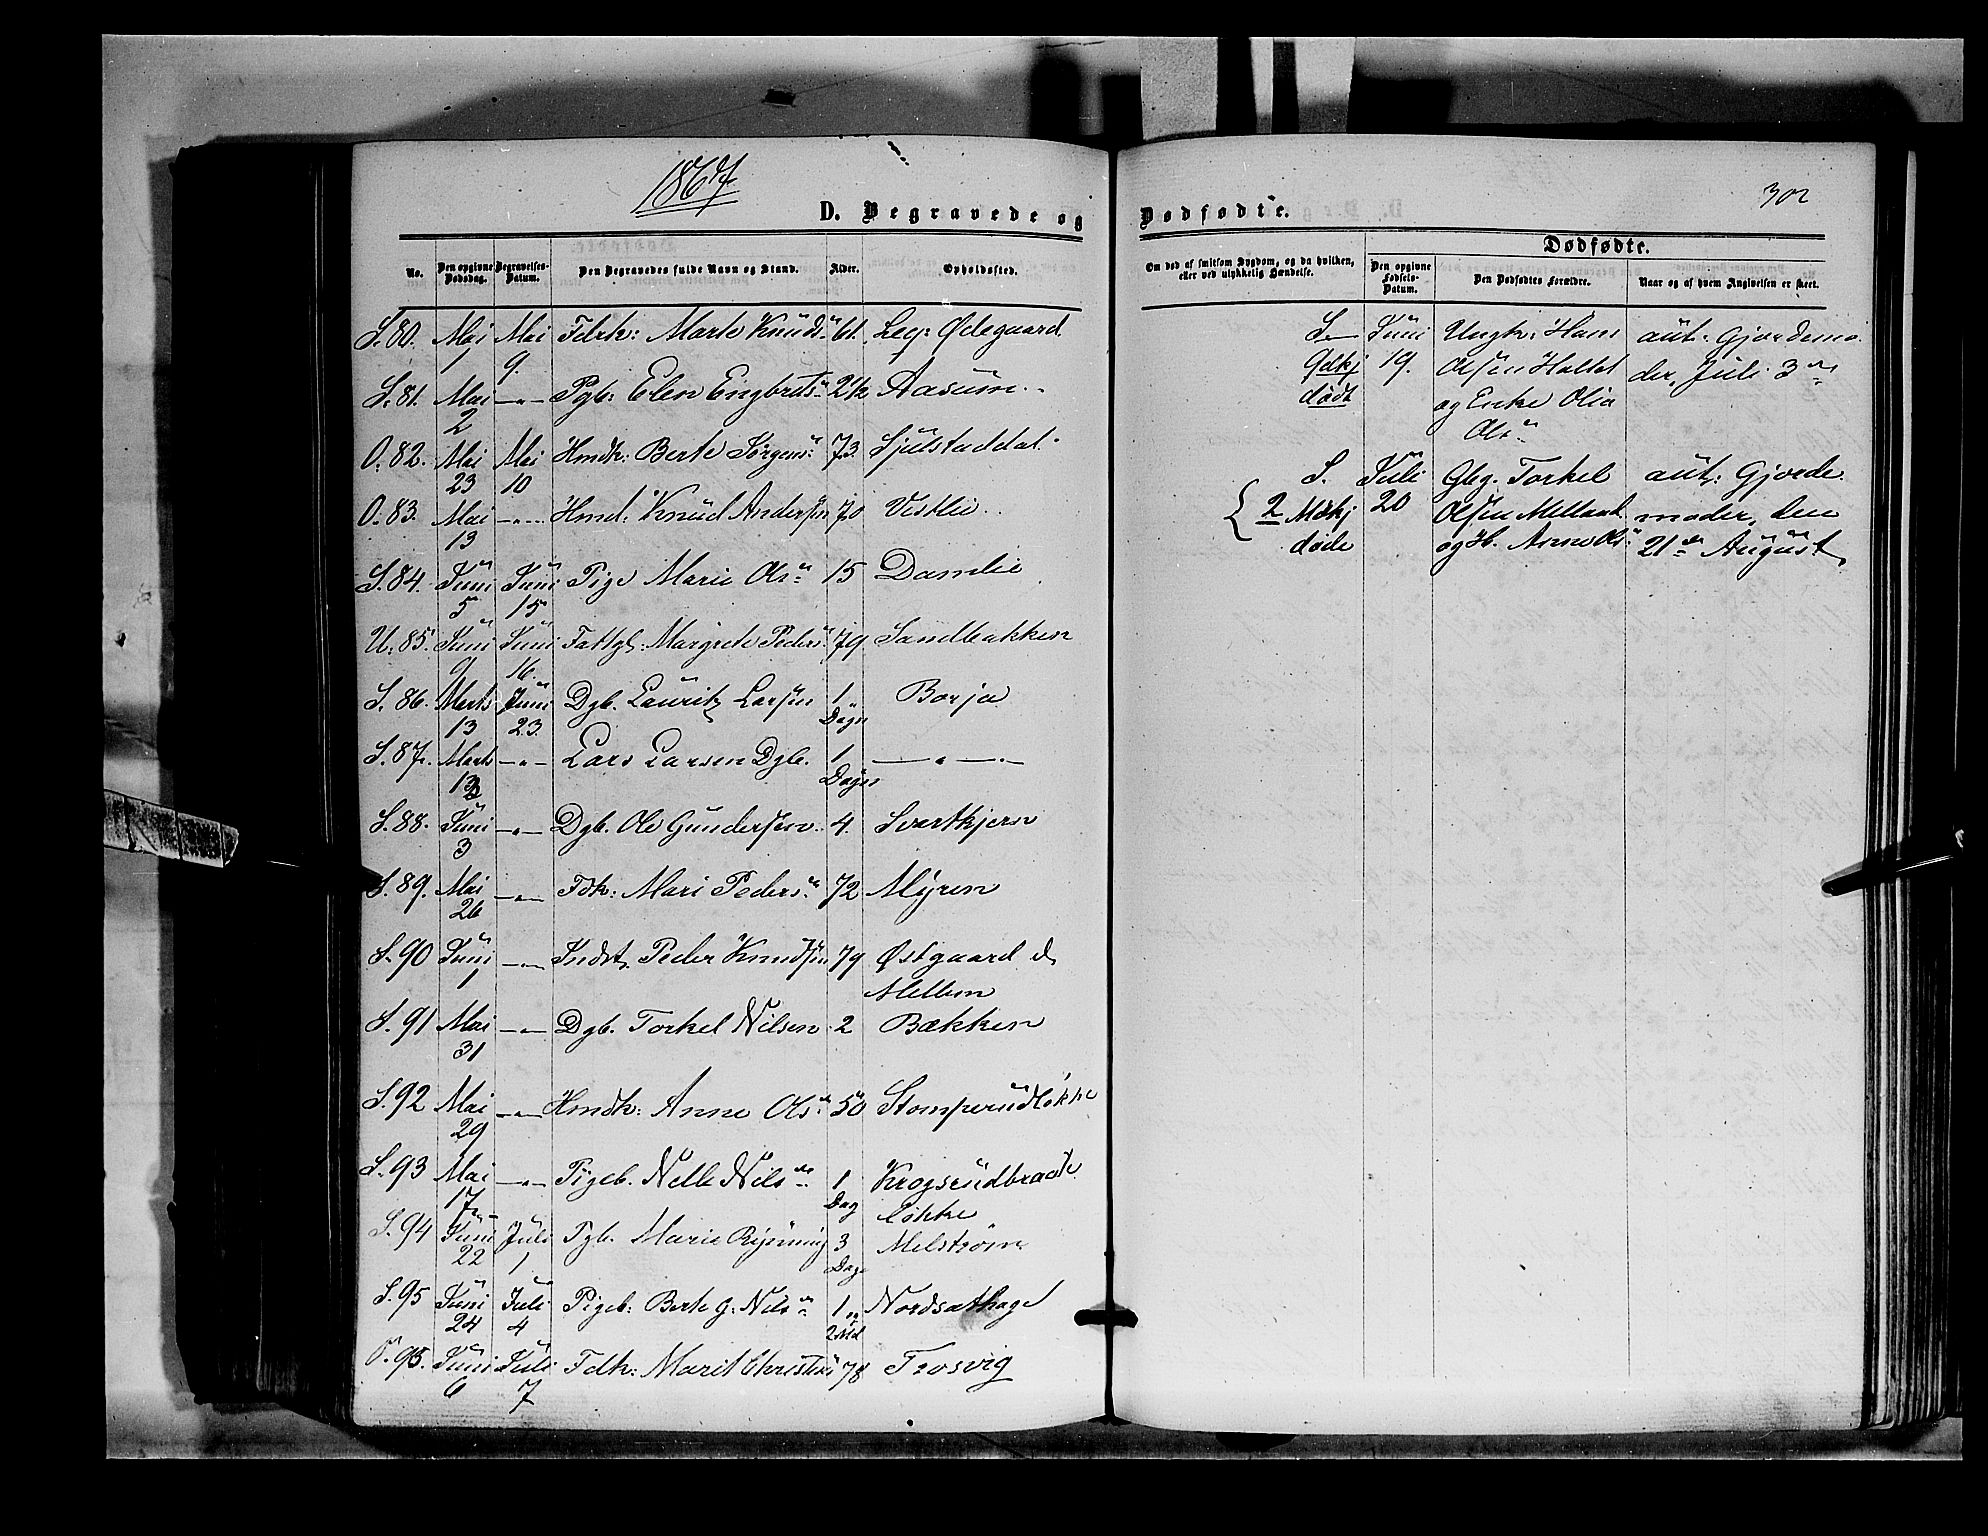 1867
302
D. Begravede og Dødfødte.
No. Den opgivne Dødsdag. Begravelses-Datum. Den Begravedes fulde Navn og Stand. Alder. Opholdssted.
S. 80. Mai 1 Mai 9. Fdrk: Marte Knuds 61. Leg: Ødegaard
S. 81. Mai 2 —"— Pgb: Elen Engbrets 2½ Aasum
O. 82. Mai 23 Mai 10 Hmdk: Berte Jørgens: 73. Sjulstaddal
O. 83. Mai 13 —"— Hmd: Knud Andersen 70 Vestlie
S. 84. Juni 5 Juni 15 Pige Marie Ols 15 Damlie
U. 85. Juni 9 Juni 16. Fattgl: Margrete Peders 79 Sandbakken
S. 86. Marts 13 Juni 23. Dgb. Lauritz Larsen 1 Dagn Borja
S. 87. Marts 13 —"— Lars Larsen Dgb. 1 Dagn —"—
S. 88. Juni 3 —"— Dgb. Ole Gundersen 4. Svartkjern
S. 89. Mai 26 —"— Fdk: Mari Peders 72 Myren
S. 90 Juni 1 —"— Indst. Peder Knudsen 79 Østgaard
Mellem
S. 91 Mai 31 —"— Dgb. Torkel Nilsen 2 Bækken
S. 92 Mai 29 —"— Hmdk: Anne Ols 50 Stomperudløkke
S. 93 Mai 17 —"— Pigeb. Nelle Nils 1 Dag Krogsrudbraate
løkke
S. 94 Juni 22 Juli 1 Pgb. Marie Rynning 3 Dage Melstrøm
S. 95 Juni 24 Juli 4 Pigeb: Berte G. Nils 1 og 2 Md Nordsæthage
O. 95. Juni 6 Juli 7 Fdk: Marit 78 Trosvig
Om død af smitsom Sygdom, og da hvilken, eller ved ulykkelig Hændelse.
Dødfødte.
Den opgivne Fødsels-Datum. Den Dødfødtes Forældre. Naar og af hvem Angivelsen er skeet.
S. Juni Ungk: Hans aut. Gjordemo
Qdkj 19. Olsen Holtet der, Juli 3
dødt og Enke Olia
Ols
S. Juli Gbg. Torkel aut: Gjorde
2 Mdkj 20 Olsen moder, den
døde og H. Anne Ols 21 August